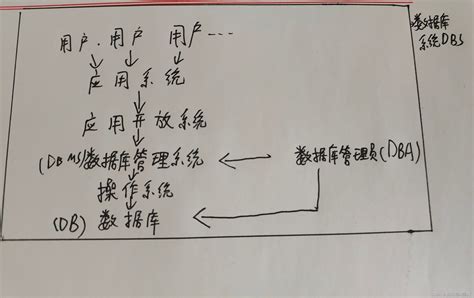 用户.用户 用户...
数据库
系统DBS
应用系统
应用开放系统
(DBMS)数据库管理系统
数据库管理员(DBA)
操作系统
(DB) 数据库